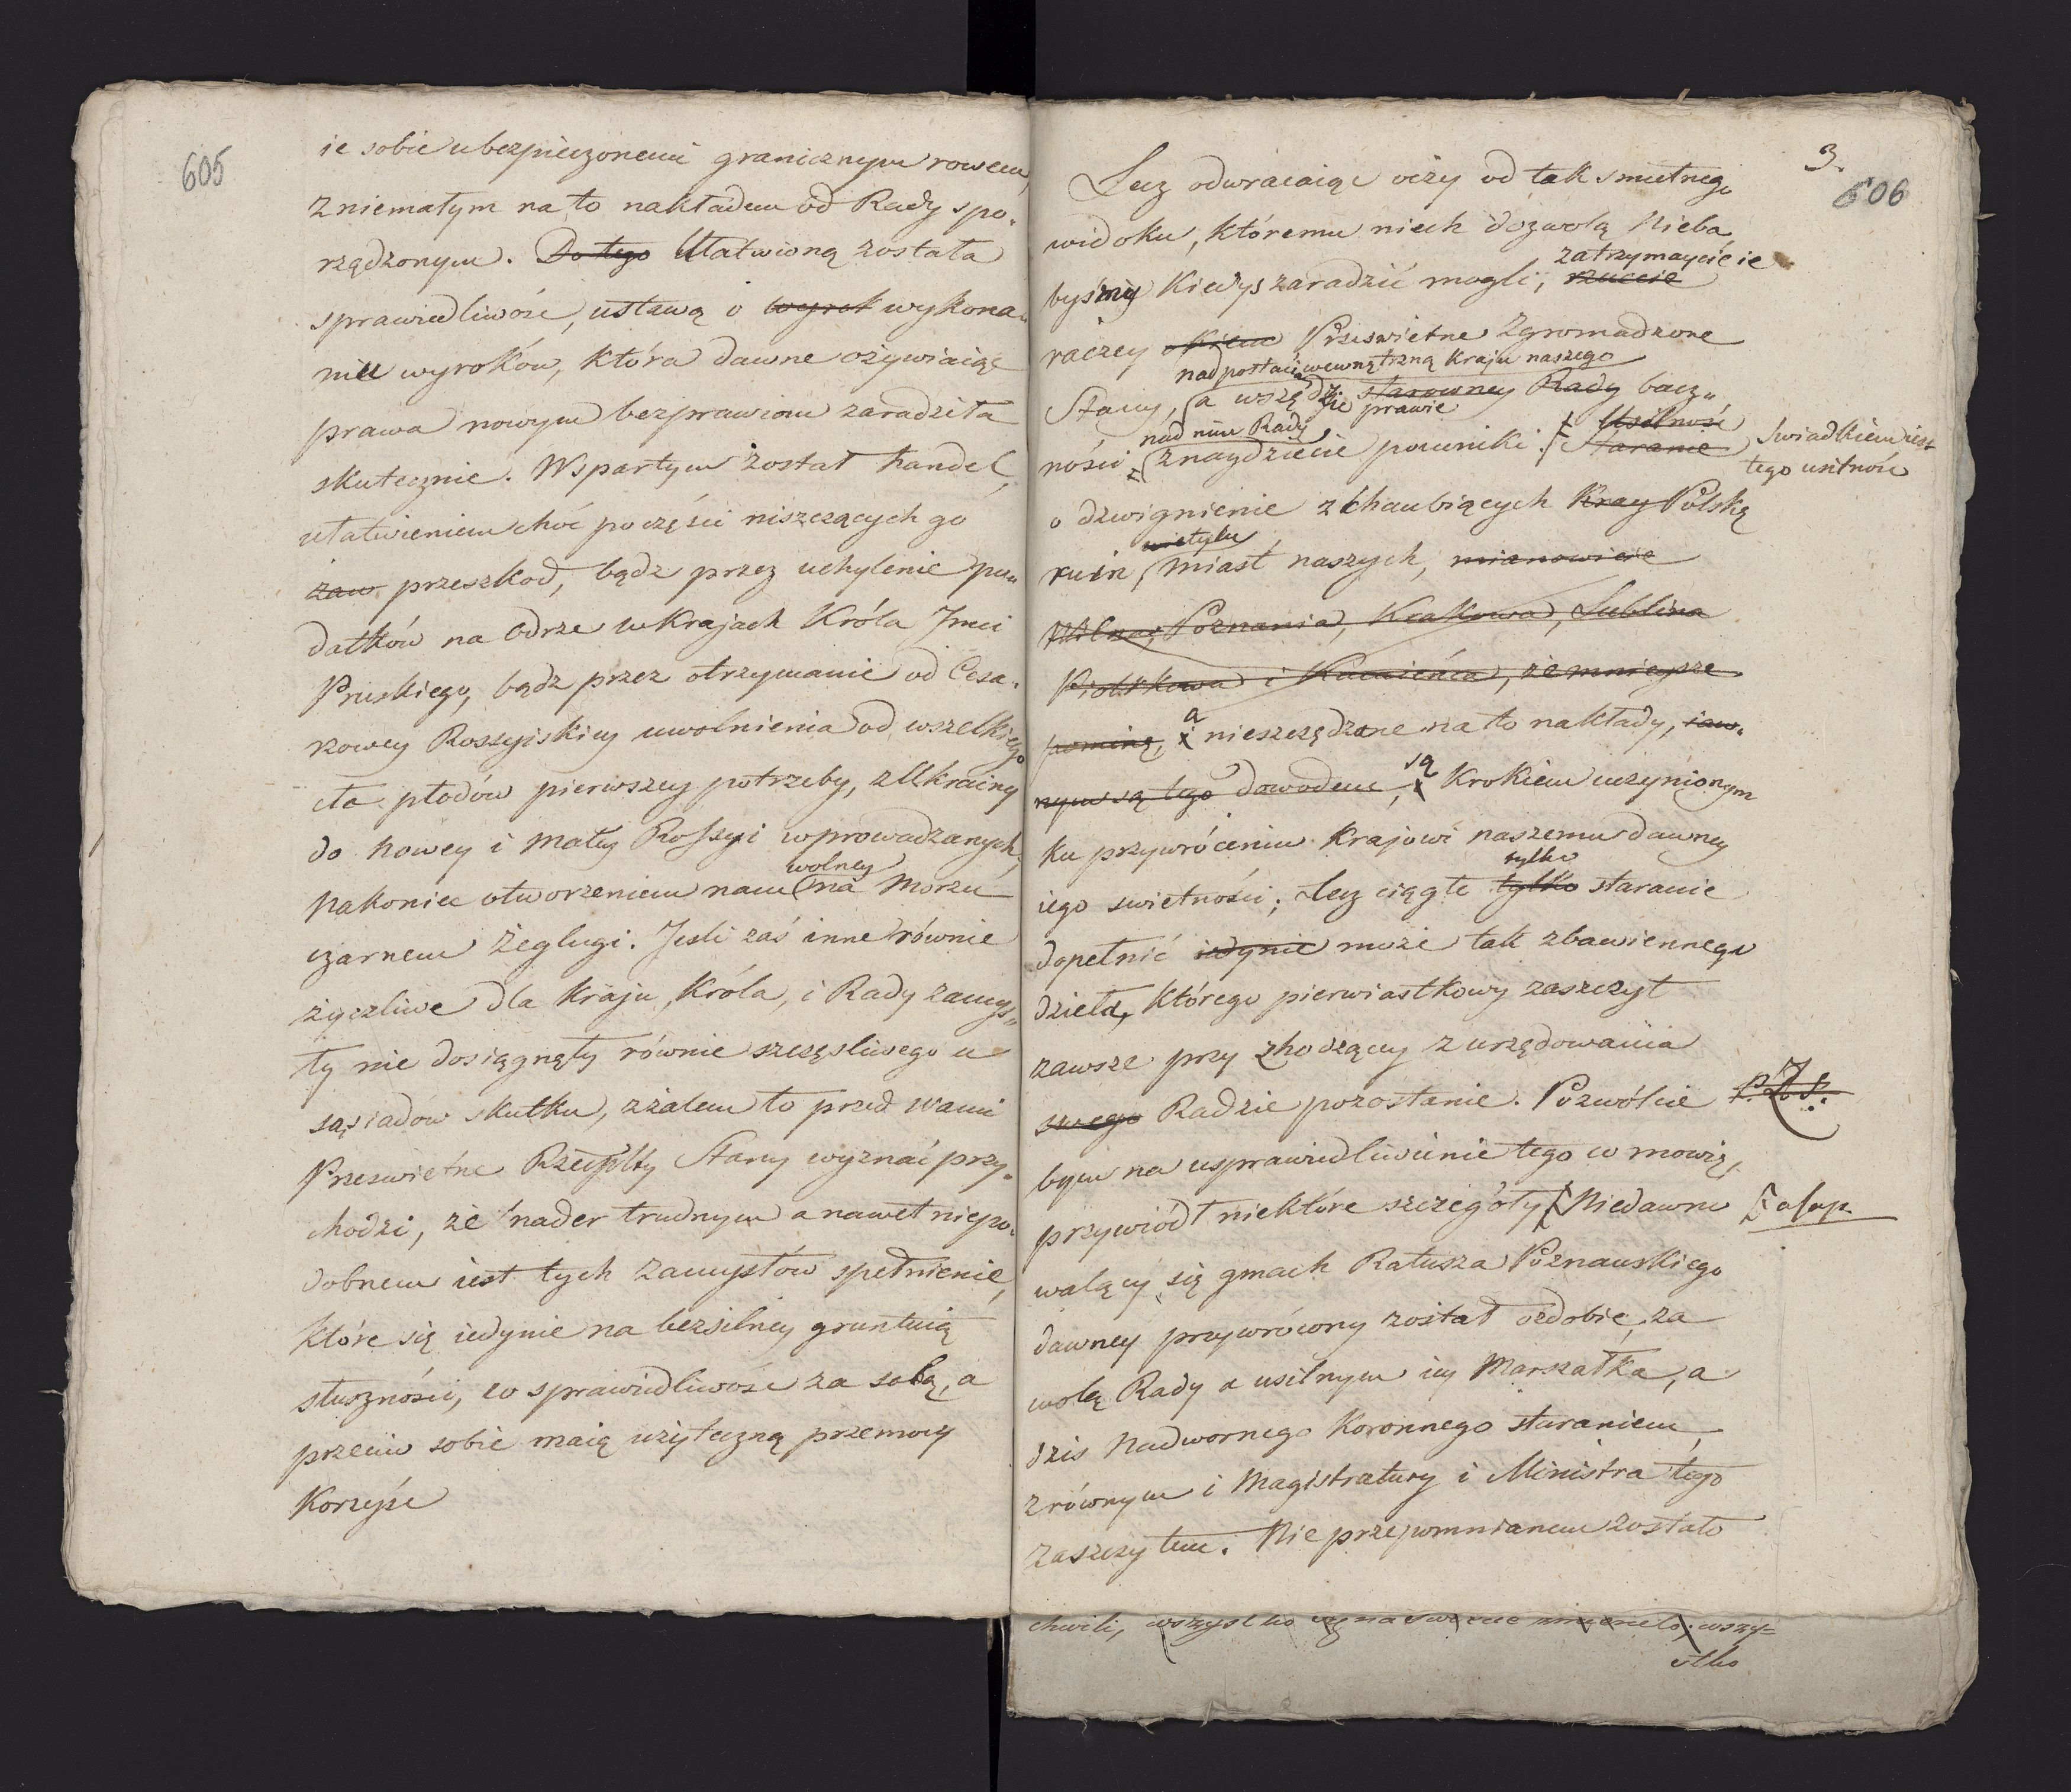 605
ie sobie ubezpieczonemi granicznym rowem,
z niemałym na to nakładem od Rady spo-
rządzonym. Do tego Ułatwioną została
sprawiedliwość, ustawą o wyrok wykona-
niu wyroków, która dawne ożywiaiąc
prawa nowym bezprawiom zaradziła
skutecznie. Wspartym został handel,
ułatwieniem choć po części niszczących go
zaw przeszkod, bądz przez uchylenie pu-
datków na Odrze w Krajach Króla Jmci
Pruskiego, bądz przez otrzymanie od Cesa-
rzowey Rossyiskiey uwolnienia od wszelkiego
cła płodów pierwszey potrzeby, z Ukrainy
do nowey i małey Rossyi wprowadzanych,
wolney
nakoniec otworzeniem nam na Morzu
czarnem Żeglugi. Jesli zaś inne równie
życzliwe dla kraju, Króla, i Rady zamys-
ły nie dosiągnęły równie szczęsliwego u
sąsiadów skutku, z żalem to przed wami
Przeswietne Rzeczyplty Stany wyznać przy-
chodzi, że nader trudnym a nawet niepo-
dobnem iest tych zamysłów spełnienie,
które się iedynie na bezsilney gruntuią
słuszności, co sprawiedliwość za sobą, a
przeciw sobie maią użyteczną przemocy
Korzyść
3.
606
Lecz odwracaiąc oczy od tak smutnego
widoku, któremu niech dozwolą Nieba
zatrzymaycie ie
byśmy kiedyś zaradzić mogli, rzuccie
raczey okiem Prześwietne Zgromadzone
nad postacią wewnętrzną Kraju naszego
Stany, a wszędzie starowney Rady bacz-
prawie
nad nim Rady
Usilność
ności znaydziecie pomniki. Staranie
Swiadkiem iest
tego usilność
o dzwignienie z chańbiących Kray Polską
wielylu
ruin, miast naszych, mianowicie
Wilna, Poznania, Krakowa, Lublina
Piotrkowa i Kamieńca, że mnieysze
a
pominę, i nieszczędzone na to nakłady, iaw-
są
nym są tego dowodem, Krokiem uczynionym
ku przywróceniu Krajowi naszemu dawney
tylko
iego swietności; Lecz ciągłe tylko staranie
dopełnić iedynie może tak zbawiennego
dzieła, którego pierwiastkowy zaszczyt
zawsze przy zhodzącey z urzędowania
swego Radzie pozostanie. Pozwólcie P. Z. S.
bym na usprawiedliwienie tego co mowię,
przywiódł niektóre szczegóły Niedawno
walący się gmach Ratusza Poznanskiego
dawney przywrócony został ozdobie, za
wolą Rady a usilnym iey Marszałka, a
dzis Nadwornego Koronnego staraniem,
z równym i Magistratury i Ministra tego
zaszczytem. Nie przepomnianem zostało
chwili, wszystko
wszy=
stko